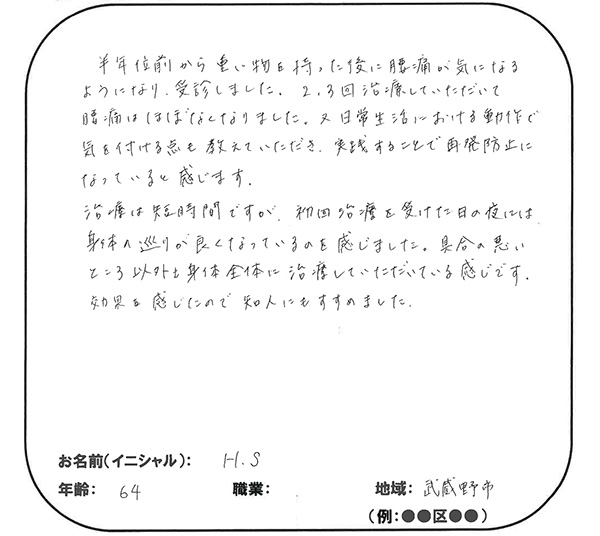 半年位前から重い物を持った後に腰痛が気になる
ようになり、受診しました。2、3回治療していただいて
腰痛はほぼなくなりました。又日常生活における動作で
気を付ける点も教えていただき、実践することで再発防止に
なっていると感じます。
治療は短時間ですが、初回治療を受けた日の夜には、
身体の巡りが良くなっているのを感じました。具合の悪い
ところ以外も身体全体に治療していただいている感じです。
効果を感じたので知人にもすすめました。
お名前(イニシャル): H.S
年齢: 64 職業: 地域: 武蔵野市
(例:●●区●●)